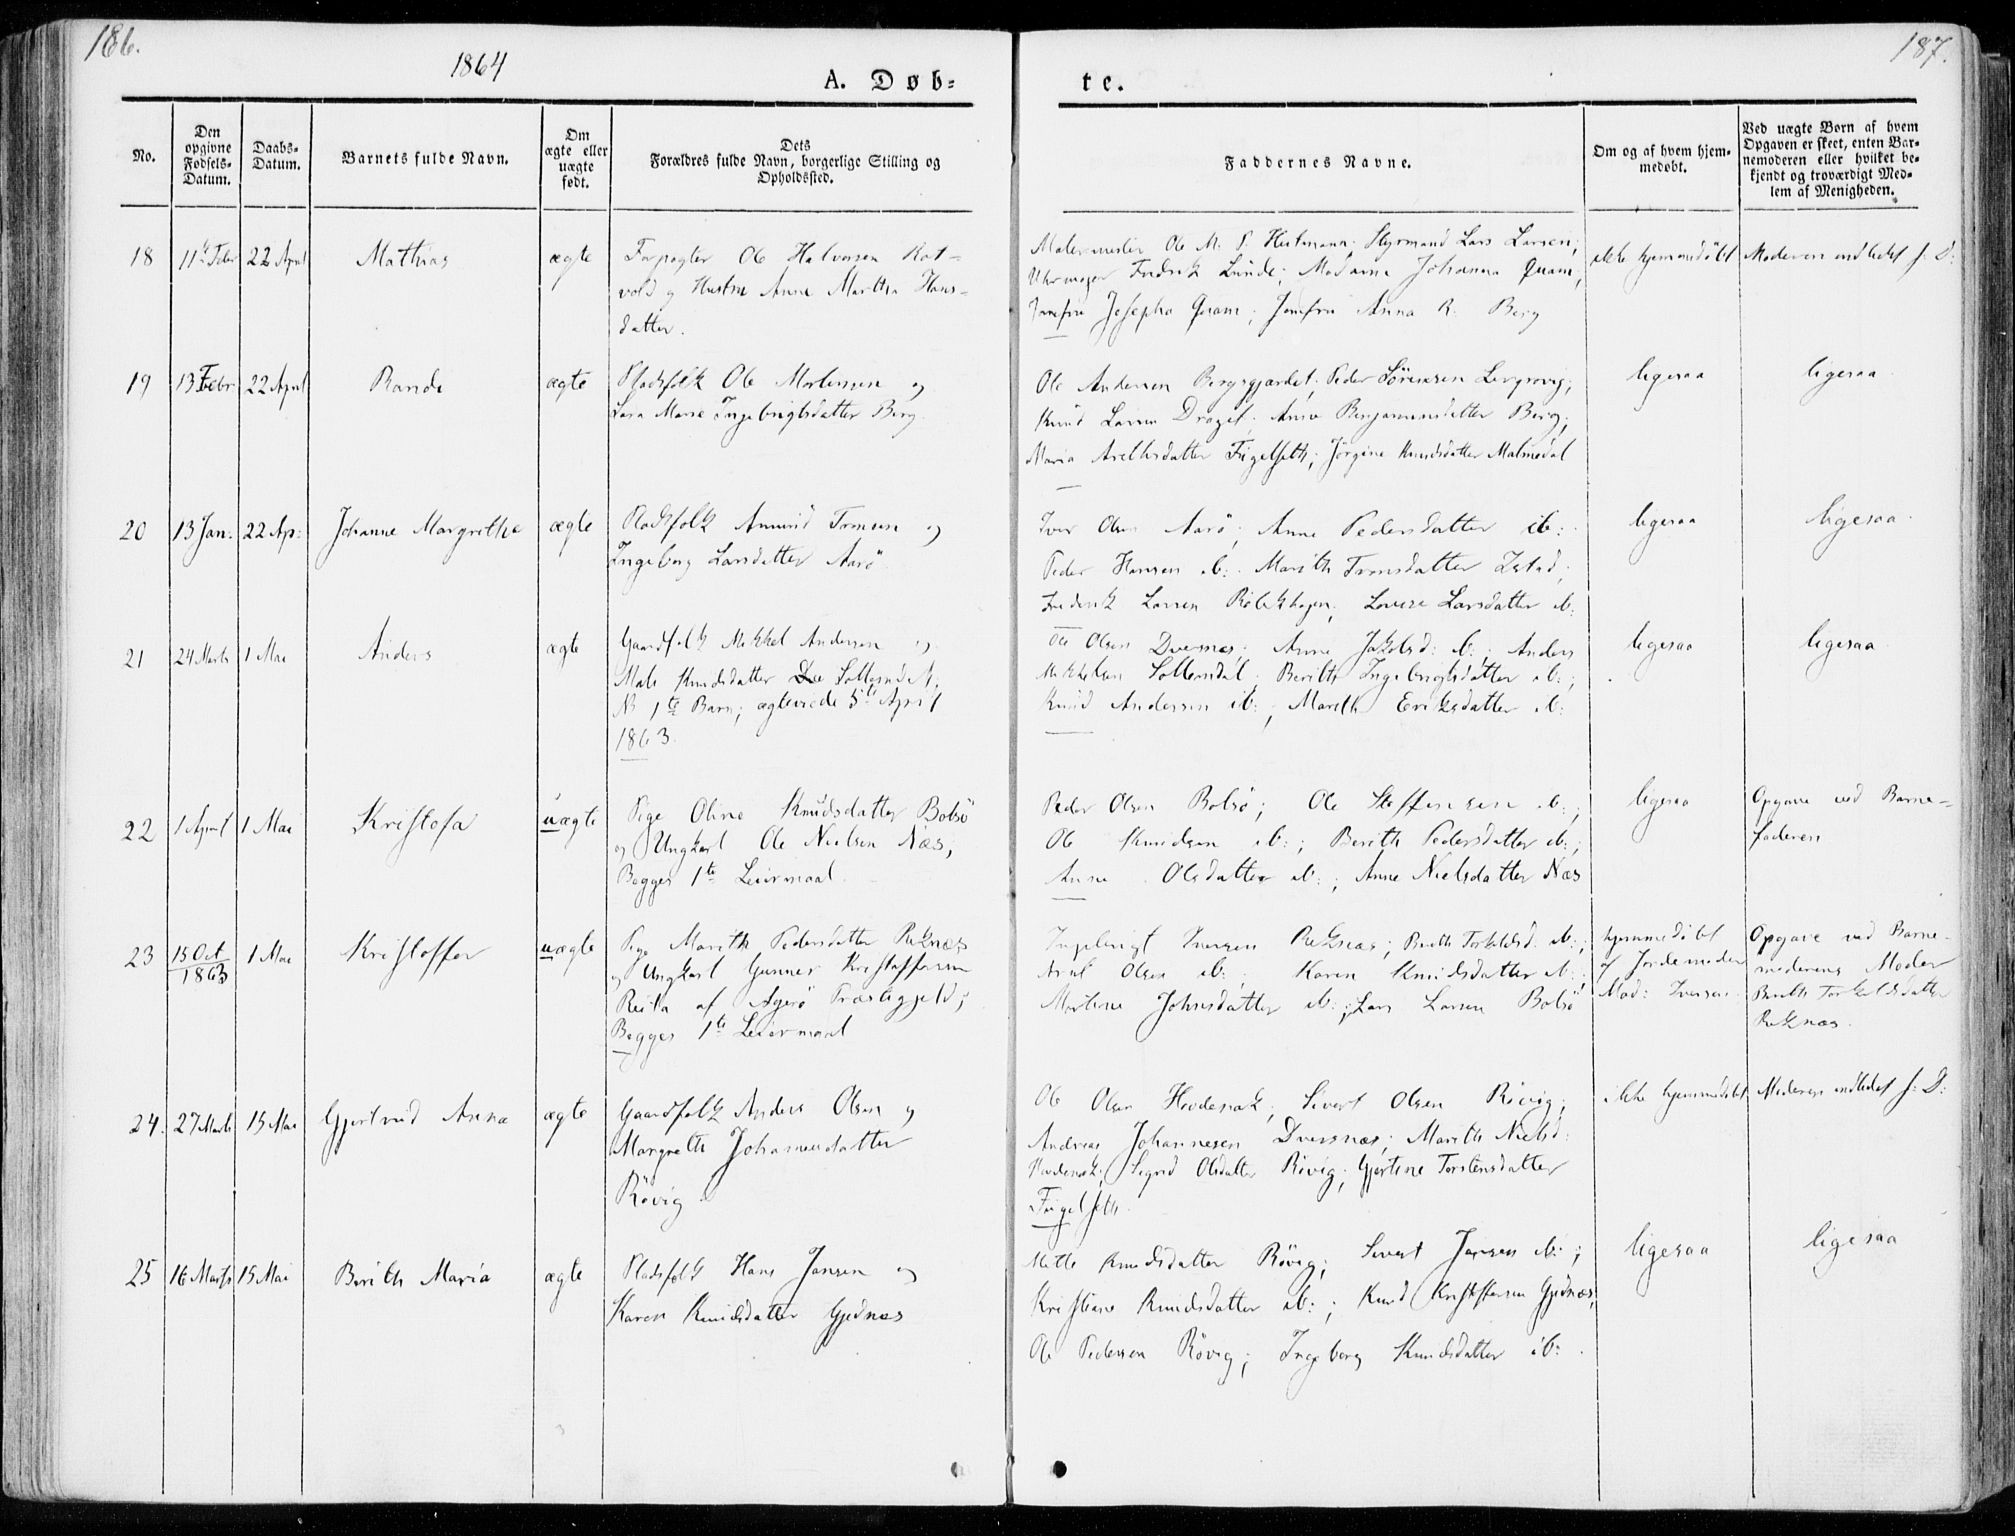 186.
187.
1864
A. Døb-
te.
No.
Den opgivne Fødsels-Datum.
Daabs-Datum.
Barnets fulde Navn.
Om ægte eller uægte født.
Dets Forældres fulde Navn, borgerlige Stilling og Opholdssted.
Faddernes Navne.
Om og af hvem hjem-medøbt.
Ved uægte Børn af hvem Opgaven er skeet, enten Bar-nemoderen eller hvilket be-kjendt og troværdigt Med-lem af Menigheden.
18 11te Febr 22 April Mathias ægte
Forpagter Ole Halvorsen Rot-
vold og Hustru Anne Martha Hans-
datter.
Malermester Ole M. P. Heitmann; Styrmand Lars Larsen;
Uhrmager Fredrik Lunde; Madame Johanna Quam;
Jomfru Josepha Quam; Jomfru Anna R. Berg
ikke hjemmedöbt
Moderen indledet f: D:
19 13 Febr 22 April Randi ægte
Pladsfolk Ole Mortensen og
Lava Marie Ingebrigtsdatter Berg.
Ole Andersen Bergsgjærdet; Peder Sörensen Lergrovig;
Knud Larsen Draget; Anne Benjaminsdatter Berg;
Maria Arellsdatter Fugelseth; Jörgine Knudsdatter Malmedal
ligesaa
ligesaa
20 13 Jan: 22 Ap: Johanne Margrethe ægte
Pladsfolk Amund Tronsen og
Ingeborg Larsdatter Aarö
Iver Olsen Aarö; Anne Pedersdatter ib:
Peder Hansen ib: Marith Tronsdatter Istad;
Frederik Larsen Röbekhagen; Lovise Larsdatter ib:
ligesaa
ligesaa
21 24 Marts 1 Mai Anders ægte
Gaardfolk Mikkel Andersen og
Mali Knudsdatter Sollesnd A.
N 1te Barn; ægteviede 5te April
1863.
Ole Olsen Dversnes; Anne Jakobsd: ib:; Anders
Mikkelsen Sollemdal; Berith Ingebrigtsdatter ib:;
Knud Andersen ib:; Marith Eriksdatter ib:
ligesaa
ligesaa
22 1 April 1 Mai Kristofa uægte
Pige Oline Knudsdatter Bolsö
og Ungkarl Ole Nielsen Næs;
Begges 1te Leiermaal.
Peder Olsen Bolsö; Ole Steffensen ib:;
Ole Knudsen ib:; Berith Pedersdatter ib:;
Anne Olsdatter ib:; Anne Nielsdatter Næs
ligesaa
Opgave ved Barne-
faderen
23 15 Oct 1863 1 Mai Kristoffer uægte
Pige Marith Pedersdatter Reknæs
og Ungkarl Gunner Kristoffersen
Reita af Agerö Præstegjeld;
Begges 1te Leiermaal
Ingebrigt Iversen Reknæs; Berith Torkildsd: ib:;
Arnt Olsen ib:; Karen Knudsdatter ib:;
Martine Johnsdatter ib:; Lars Larsen Bolsö
hjemmedöbt
af Jordemoder
Mad: Iversen
Opgave ved Barne-
moderens Moder
Berith Torkildsdatter
Reknæs.
24. 27 Marts 15 Mai Gjertrud Anna ægte
Gaardfolk Anders Olsen og
Margrethe Johannesdatter
Rövig.
Ole Olsen Hovdenak; Sivert Olsen Rövig;
Andreas Johannesen Dversnæs; Marith Nielsd:
Hovdenak; Sigrid Olsdatter Rövig; Gjertine Torstensdatter
Fugelseth.
ikke hjemmedöbt
Moderen indledet f: D:
25 16 Marts 15 Mai Berith Maria ægte
Pladsfolk Hans Jansen og
Karen Knudsdatter Gjednæs
Mette Knudsdatter Rövig; Sivert Jansen ib:;
Kristiane Knudsdatter ib:; Knud Kristoffersen Gjednæs;
Ole Pedersen Rövig; Ingeborg Knudsdatter ib:.
ligesaa
ligesaa